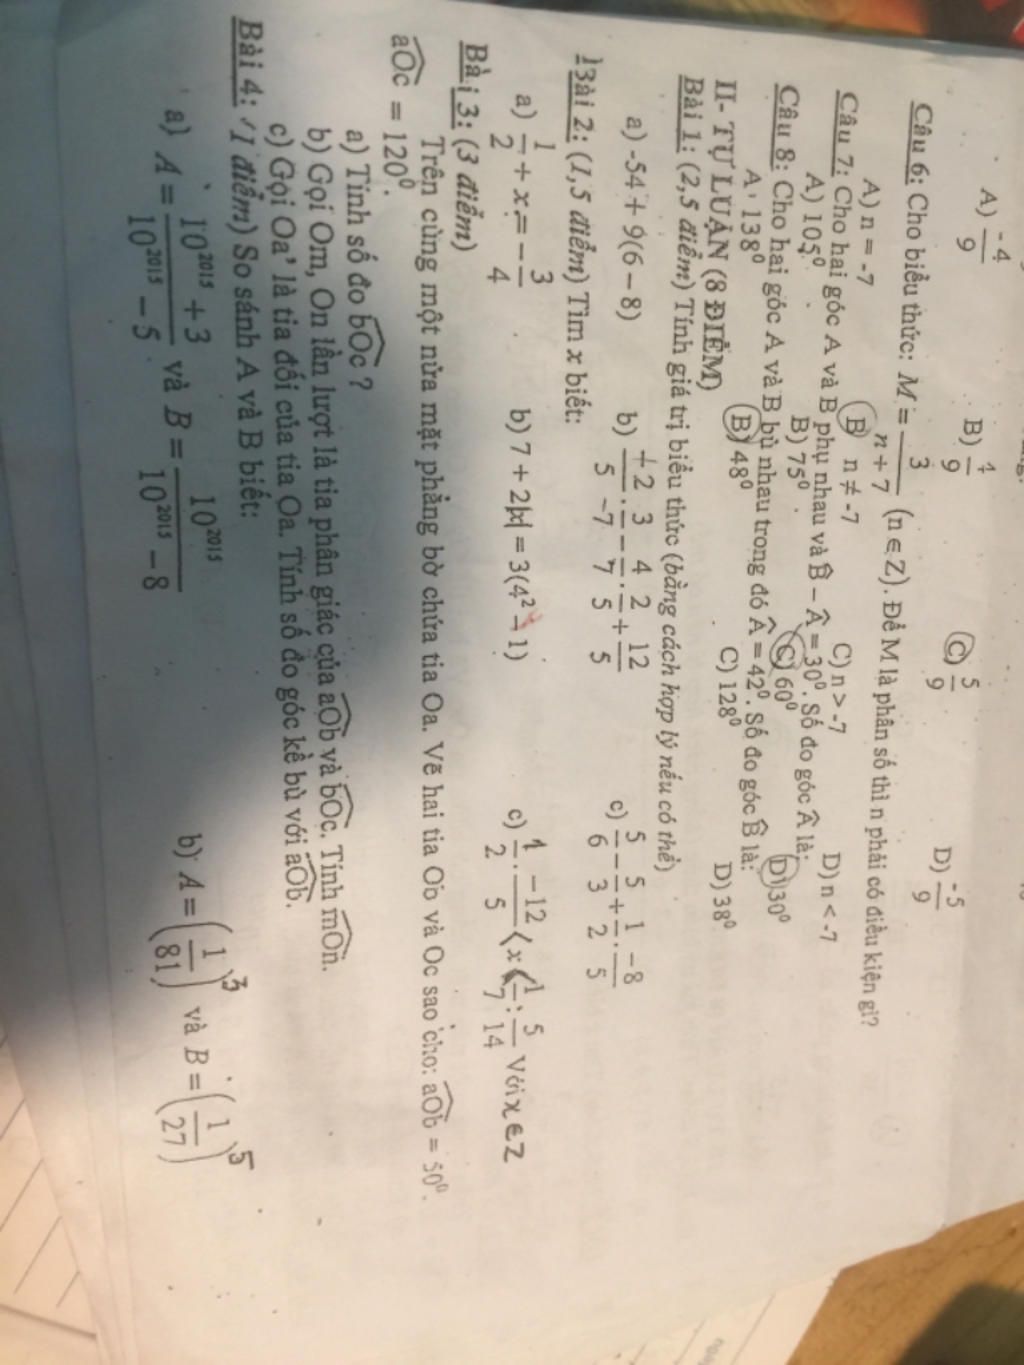 A) -4/9 B) 4/9 C) 5/9 D) -5/9
Câu 6: Cho biểu thức: M = 3/(n + 7) (n ∈ Z). Để M là phân số thì n phải có điều kiện gì?
A) n = -7 B) n ≠ -7 C) n > -7 D) n < -7
Câu 7: Cho hai góc A và B phụ nhau và B̂ – Â = 30⁰. Số đo góc Â là:
A) 105⁰ B) 75⁰ C) 60⁰ D) 30⁰
Câu 8: Cho hai góc A và B bù nhau trong đó Â = 42⁰. Số đo góc B̂ là:
A 138⁰ B) 48⁰ C) 128⁰ D) 38⁰
II- TỰ LUẬN (8 ĐIỂM)
Bài 1: (2,5 điểm) Tính giá trị biểu thức (bằng cách hợp lý nếu có thể)
a) -54 + 9(6 – 8) b) +2/5 : 3/-7 – 4/7 : 2/5 + 12/5 c) 5/6 – 5/3 + 1/2 . -8/5
Bài 2: (1,5 điểm) Tìm x biết:
a) 1/2 + x = – 3/4 b) 7 + 2|x| = 3(4² – 1) c) 1/2 . -12/5 < x < 1/7 : 5/14 Với x ∈ Z
Bài 3: (3 điểm)
Trên cùng một nửa mặt phẳng bờ chứa tia Oa. Vẽ hai tia Ob và Oc sao cho: aOb = 50⁰.
aOc = 120⁰.
a) Tính số đo bOc ?
b) Gọi Om, On lần lượt là tia phân giác của aOb và bOc. Tính mOn.
c) Gọi Oa' là tia đối của tia Oa. Tính số đo góc kề bù với aOb.
Bài 4: (1 điểm) So sánh A và B biết:
a) A = (10²⁰¹⁵ + 3)/(10²⁰¹⁵ – 5) và B = 10²⁰¹⁵/(10²⁰¹⁵ – 8) b) A = (1/81)³ và B = (1/27)⁵